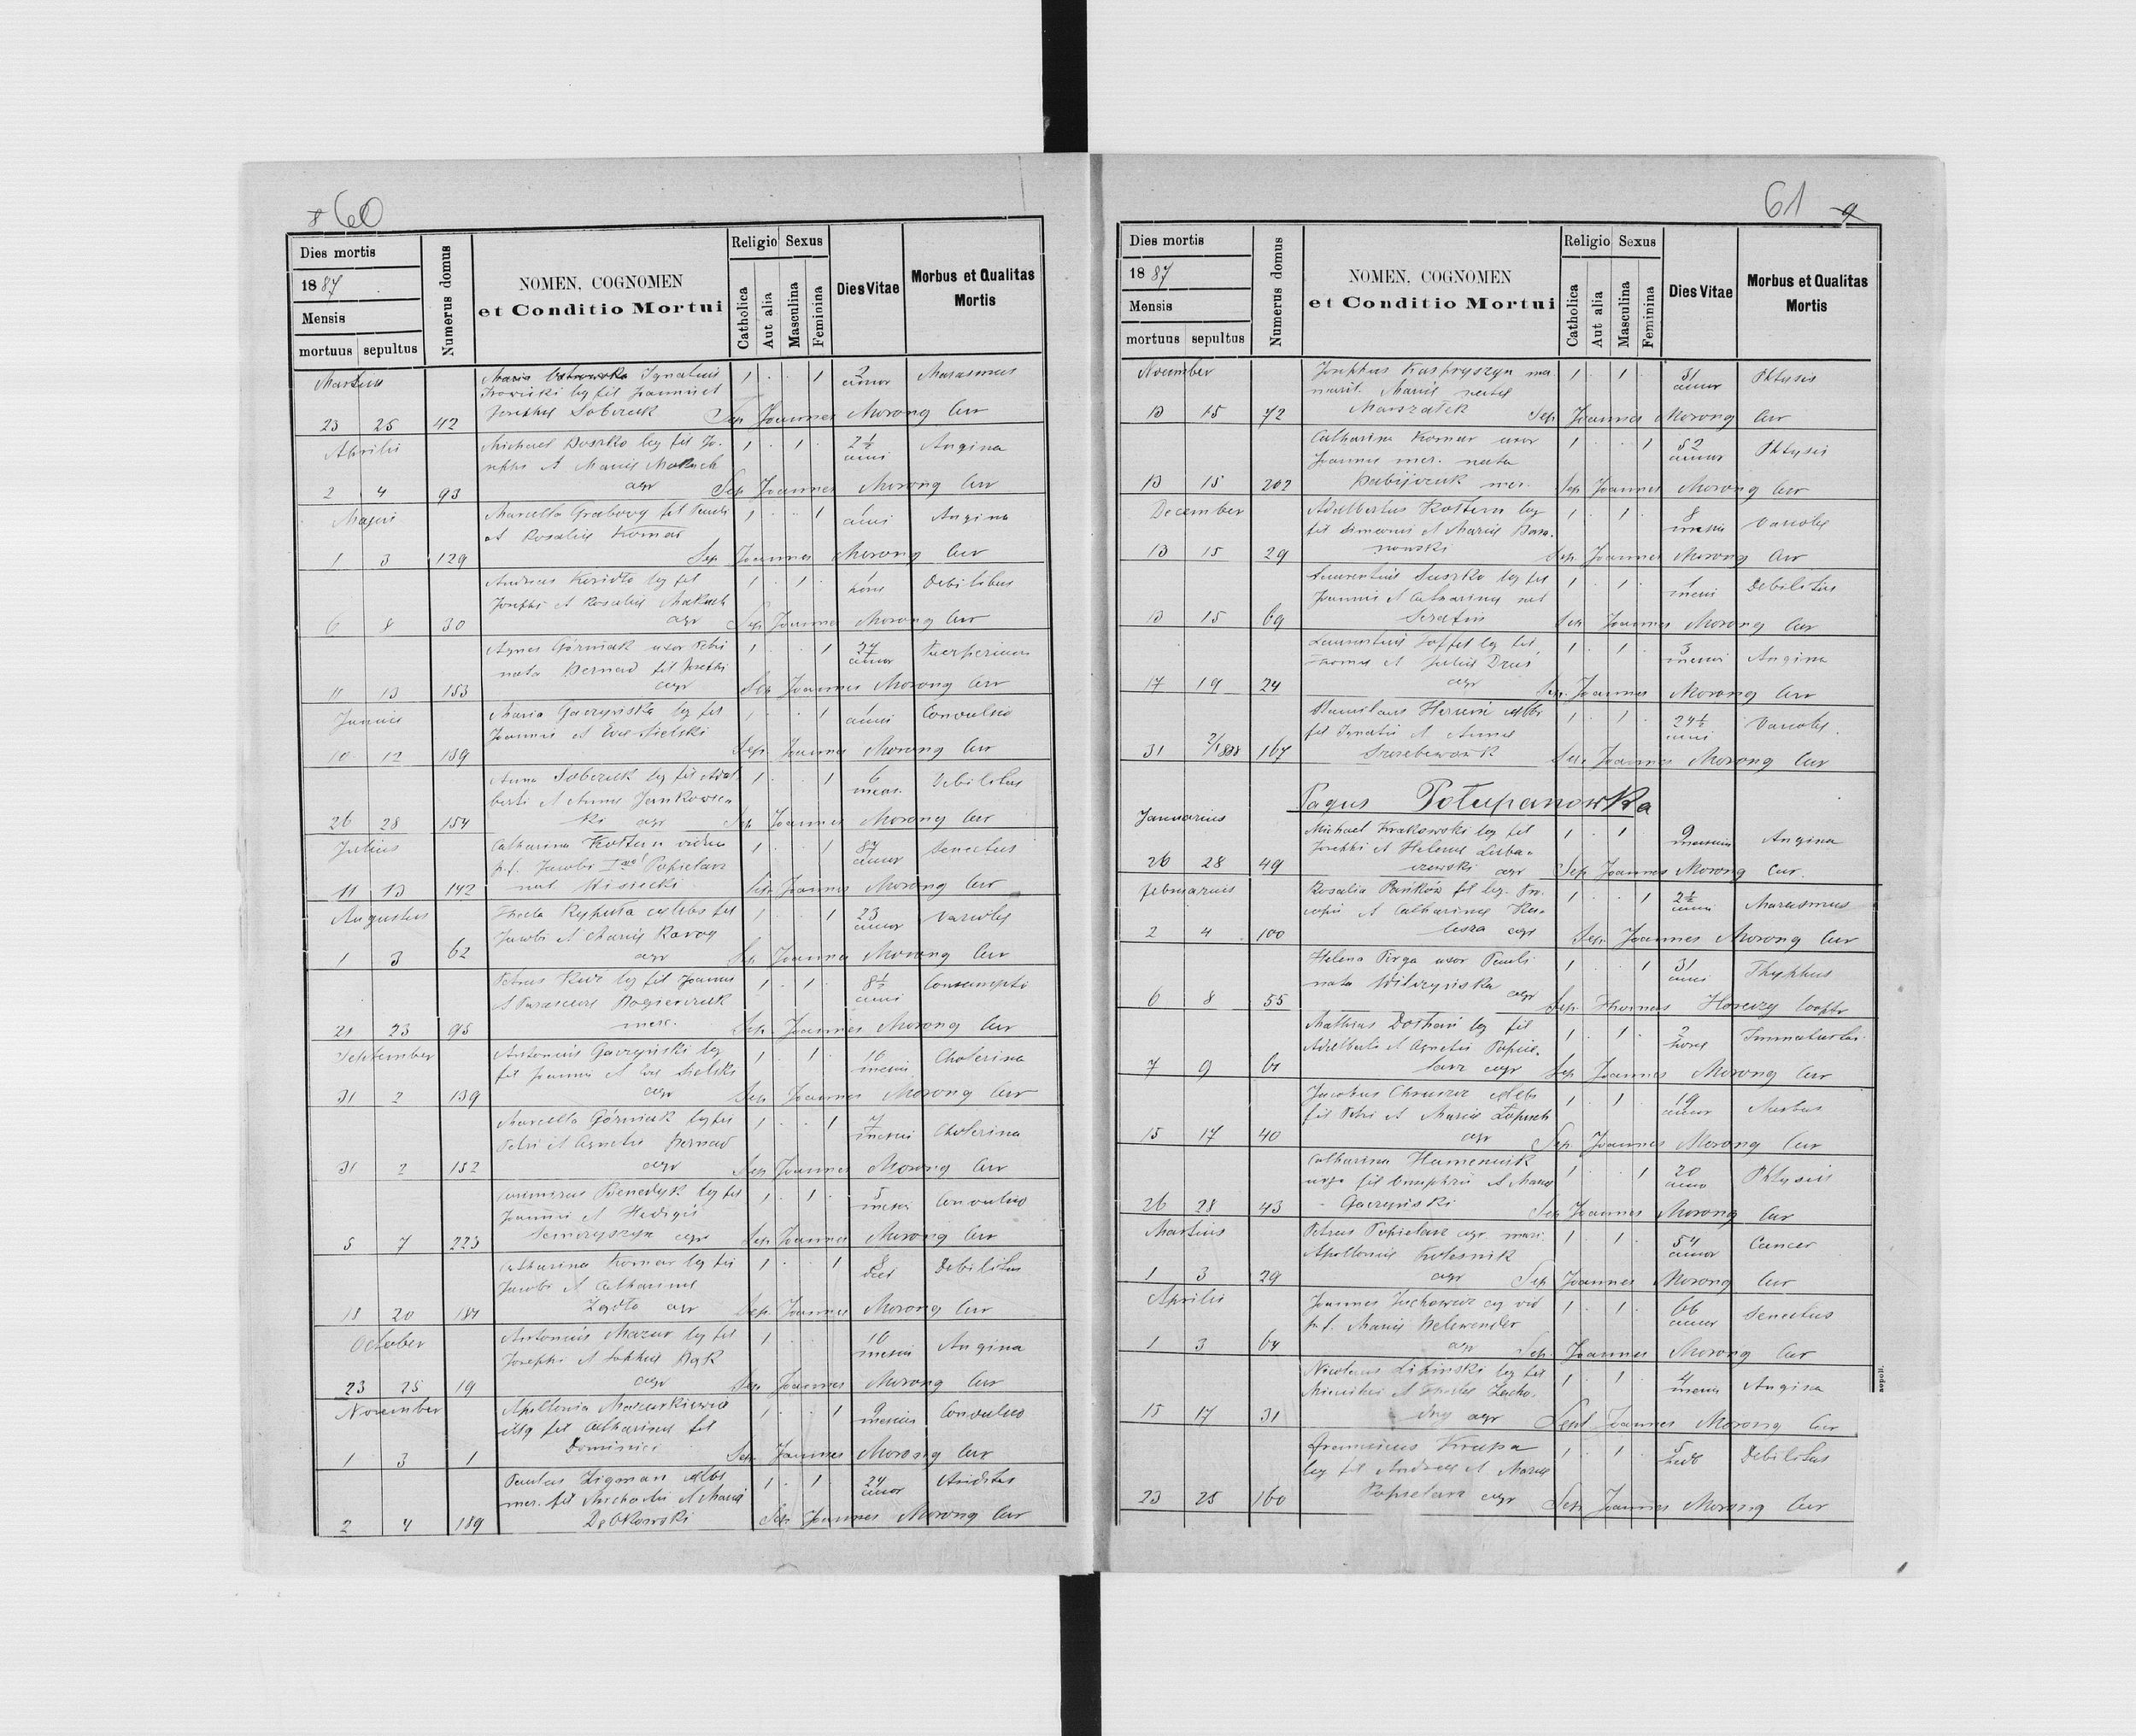 8 60
Dies mortis
1887
Mensis
mortuus sepultus
Numerus domus
NOMEN, COGNOMEN
et Conditio Mortui
Religio Sexus
Catholica
Aut alia
Masculina
Feminina
Dies Vitae
Morbus et Qualitas
Mortis
Martius
Ignatius 1 1 2 Marasmus
leg fil Joannis et annor
23 25 42 Josephae Soberuk Sep Joannes Morong Cur
Aprilis Michael leg fil Jo- 1 1 2½ Angina
sephi et Mariae Makuch anni
2 4 93 agr Sep Joannes Morong Cur
Majus Marcella Grabowy fil Pauli 1 1 1 Angina
et Rosaliae Komar anni
1 3 129 Sep Joannes Morong Cur
Andreas leg fil 1 1 1 Debilitas
Josephi et Rosaliae Makuch
6 8 30 agr Sep Joannes Morong Cur
Agnes Górniak uxor Petri 1 1 37 Puerperium
nata Bernad fil Josephi annor
11 13 153 agr Sep Joannes Morong Cur
Junius Maria Gaczyńska leg fil 1 1 1 Convulsio
Joannis et Evae Sielski anni
10 12 139 Sep Joannes Morong Cur
Anna Soberuk leg fil Adal 1 1 6 Debilitas
berti et Annae Jankowsz mens.
26 28 154 ki agr Sep Joannes Morong Cur
Julius Catharina Kołtun vidua 1 1 87 Senectus
p.f. Jacobi Popielarz annor
11 13 142 nat Misiecki Sep Joannes Morong Cur
Augustus Thecla Rypuła caelebs fil 1 1 23 Variolae
Jacobi et Mariae annor
1 3 62 agr Sep Joannes Morong Cur
Petrus leg fil Joannis 1 1 8½ Consumptio
et Parascevae anni
21 23 95 merc. Sep Joannes Morong Cur
September Antonius Gaczyński leg 1 1 10 Cholerina
fil Joannis et Evae Sielski mensium
31 2 139 agr Sep Joannes Morong Cur
Marcella Górniak leg fil 1 1 7 Cholerina
Petri et Agnetis Bernad mensium
31 2 152 agr Sep Joannes Morong Cur
Casimirus Benedyk leg fil 1 1 5 Convulsio
Joannis et Hedvigis mensi
5 7 223 agr Sep Joannes Morong Cur
Catharina Komar leg fil 1 1 8 Debilitas
Jacobi et Catharinae dies
18 20 187 agr Sep Joannes Morong Cur
October Antonius Mazur leg fil 1 10 Angina
Josephi et Sophiae Bąk mensium
23 25 19 agr Sep Joannes Morong Cur
November Apollonia Mazurkiewicz 1 1 9 Convulsio
illeg fil Catharinae fil mensium
1 3 1 Dominici Sep Joannes Morong Cur
Paulus Zigman caelebs 1 1 24
mer. fil Michaelis et Maria annor
2 4 189 Dębkowski Sep Joannes Morong Cur
61 9
Dies mortis
1887
Mensis
mortuus sepultus
Numerus domus
NOMEN, COGNOMEN
et Conditio Mortui
Religio Sexus
Catholica
Aut alia
Masculina
Feminina
Dies Vitae
Morbus et Qualitas
Mortis
November Josephus Kaspryszyn 1 1 51 Phtysis
marit. Mariae natae annor
13 15 72 Marszałek Sep. Joannes Morong Cur
Catharina Komar uxor 1 1 52 Phtysis
Joannis mer. nata annor
13 15 202 mer. Sep Joannes Morong Cur
December Adalbertus Kołtun leg 1 1 8 Variolae
fil Simeonis et Mariae Bara- mensium
13 15 29 nowski Sep. Joannes Morong Cur
Laurentius Suszko leg fil 1 1 1 Debilitas
Joannis et Catharinae nat mensi
13 15 69 Serafin Sep Joannes Morong Cur
Laurentius leg fil 1 1 3 Angina
Thomae et Juliae Druś mensium
17 19 24 agr Sep. Joannes Morong Cur
Stanislaus caelebs 1 1 24½ Variolae
fil Ignatii et Annae anni
31 2/1 888 167 Sep. Joannes Morong Cur
Pagus Połupanowka
Januarius Michael Krakowski leg fil 1 1 9 Angina
Josephi et Helenae Luba- mensium
26 28 49 czewski agr Sep Joannes Morong Cur.
februarius Rosalia Pańków fil leg. Pro- 1 1 2½ Marasmus
copii et Catharinae Ku- anni
2 4 100 lesza agr Sep. Joannes Morong Cur
Helena Pirga uxor Pauli 1 1 31 Thyphus
nata Wilczyńska agr anni
6 8 55 Sep. Thomas Horeczy Cooptr
Mathias leg fil 1 1 2
Adalberti et Agnetis Popie- horae
7 9 61 larz agr Sep Joannes Morong Cur
Jacobus caelebs 1 1 19
fil Petri et Mariae annor
15 17 40 agr Sep Joannes Morong Cur
Catharina Humeniuk 1 1 20 Phtysis
virgo fil Onuphrii et Mariae anno
26 28 43 Gaczyński Sep Joannes Morong Cur
Martius Petrus Popielarz agr mari. 1 1 54 Cancer
Apolloniae Kolesnik annor
1 3 29 agr Sep Joannes Morong Cur
Aprilis Joannes Juchowicz agr vid 1 1 66 Senectus
p.f. Mariae annor
1 3 64 agr Sep. Joannes Morong Cur
Nicolaus Lipinski leg fil 1 1 4 Angina
et Theclae Zacho- mensi
15 17 31 dny agr Sepul Joannes Morong Cur
Franciscus Krupa 1 1 5 Debilitas
leg fil Andreae et Mariae
23 25 160 Popielarz agr Sep Joannes Morong Cur